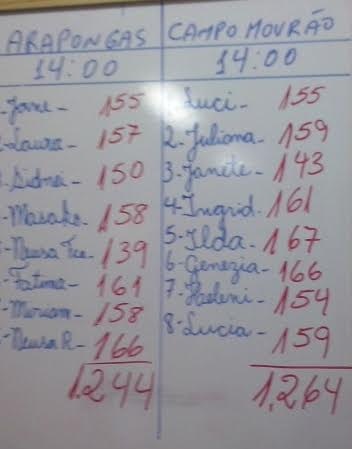 ARAPONGAS
14:00
-Jane- 155
-Laura- 157
-Sidnei- 150
-Masako- 158
-Neusa 139
-Fatima- 161
-Miriam- 158
-Neusa R- 166
1.244
CAMPO MOURÃO
14:00
Luci- 155
2-Juliana- 159
3-Janete- 143
4-Ingrid. 161
5-Ilda- 167
6-Genezia- 166
7- 154
8-Lucia- 159
1,264